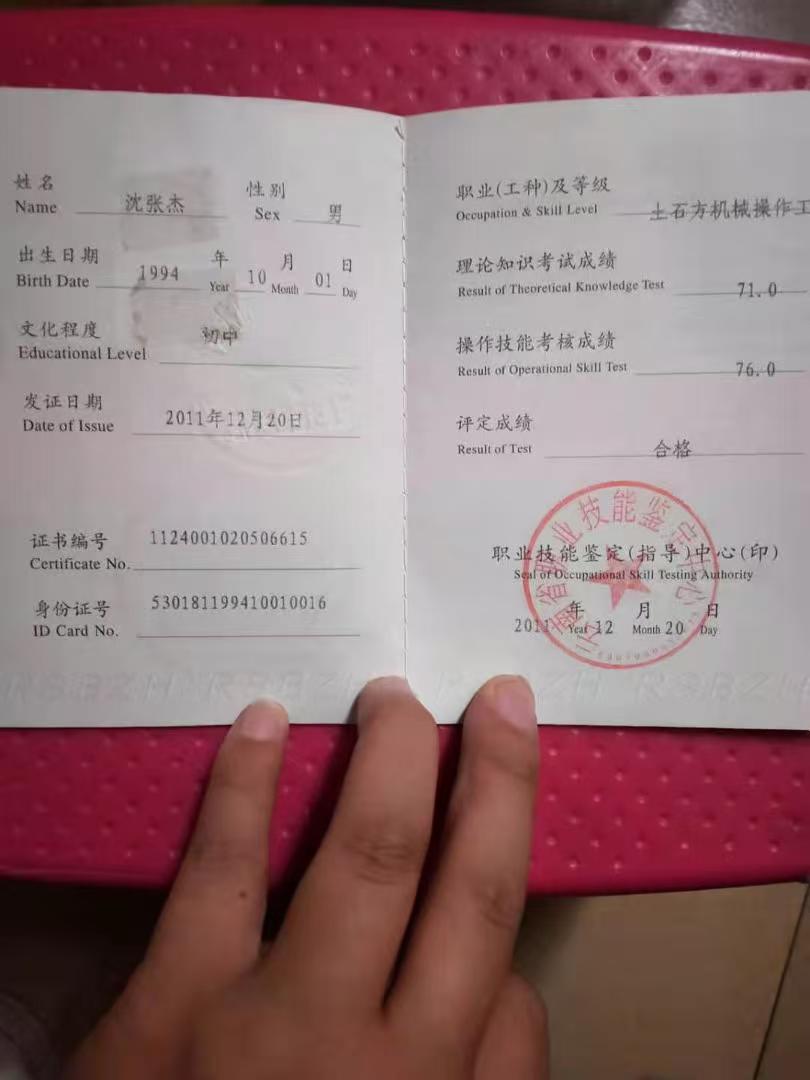 姓名 沈张杰 性别 男
Name Sex
出生日期 1994 年 10 月 01 日
Birth Date Year Month Day
文化程度 初中
Educational Level
发证日期 2011年12月20日
Date of Issue
证书编号 1124001020506615
Certificate No.
身份证号 530181199410010016
ID Card No.
职业(工种)及等级 土石方机械操作工
Occupation & Skill Level
理论知识考试成绩 71.0
Result of Theoretical Knowledge Test
操作技能考核成绩 76.0
Result of Operational Skill Test
评定成绩 合格
Result of Test
云南省职业技能鉴定中心
职业技能鉴定(指导)中心(印)
Seal of Occupational Skill Testing Authority
2011 年 12 月 20 日
Year Month Day